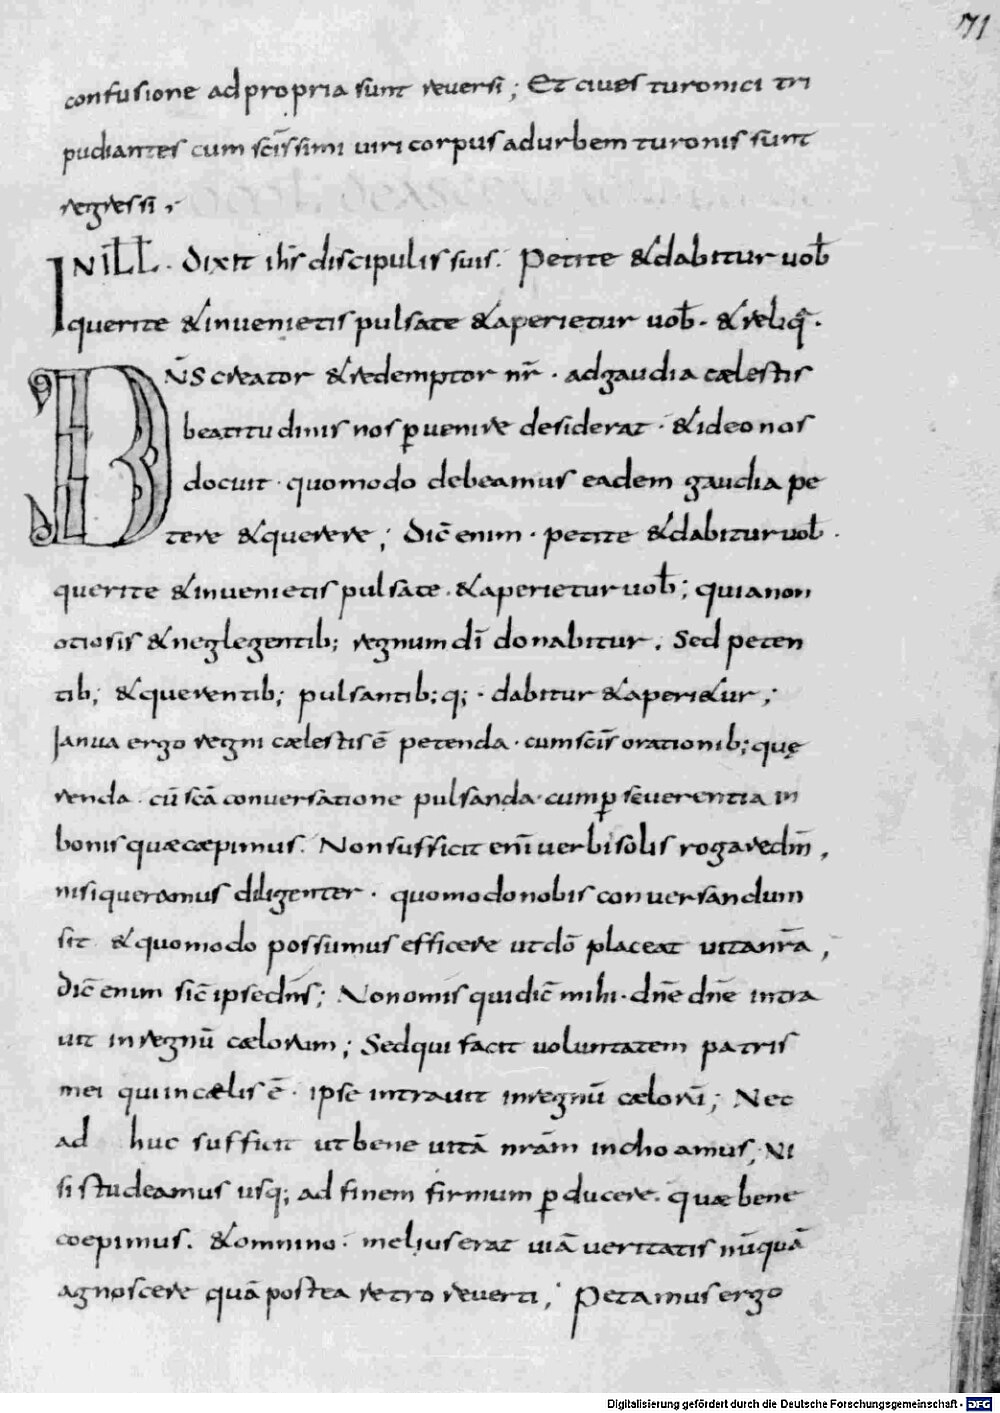 71
confusione ad propria sunt reversi; Et cives turonici tri
pudiantes cum sc̄issimi viri corpus ad urbem turonis sunt
regressi,
IN ILL̄. Dixit ih̄s discipulis suis. Petite & dabitur vob̄
querite & invenietis pulsate & aperietur vob̄. & reliq̄.
DN̄S creator & redemptor nr̄. ad gaudia cælestis
beatitudinis nos ꝑvenire desiderat. & ideo nos
docuit. quomodo debeamus eadem gaudia pe
tere & querere; Dic̄ enim. petite & dabitur vob̄.
querite & invenietis pulsate. & aperietur vob̄; quia non
otiosis & neglegentib; regnum dī donabitur. Sed peten
tib; & querentib; pulsantib; q;. dabitur & aperi&ur;
Janua ergo regni cælestis ē petenda. cum sc̄is orationib; quę
renda. cū sc̄a conversatione pulsanda. cum ꝑseverentia in
bonis quæ cæpimus. Non sufficit enī verbi solis rogare dn̄m,
nisi queramus diligenter. quomodo nobis conversandum
sit & quomodo possumus efficere ut dō placeat vita nr̄a,
Dic̄ enim sic̄ ipse dn̄s; Non omis qui dic̄ mihi. dn̄e dn̄e intra
vit in regnū cælorum; Sed qui facit voluntatem patris
mei qui in cælis ē. ipse intravit in regnū cælorū; Nec
ad huc sufficit ut bene vitā nr̄am inchoamus, Ni
si studeamus usq; ad finem firmium ꝑducere. quæ bene
coepimus. & omnino. melius erat viā veritatis nūquā
agnoscere quā postea retro reverti; Petamus ergo
Digitalisierung gefördert durch die Deutsche Forschungsgemeinschaft - DFG